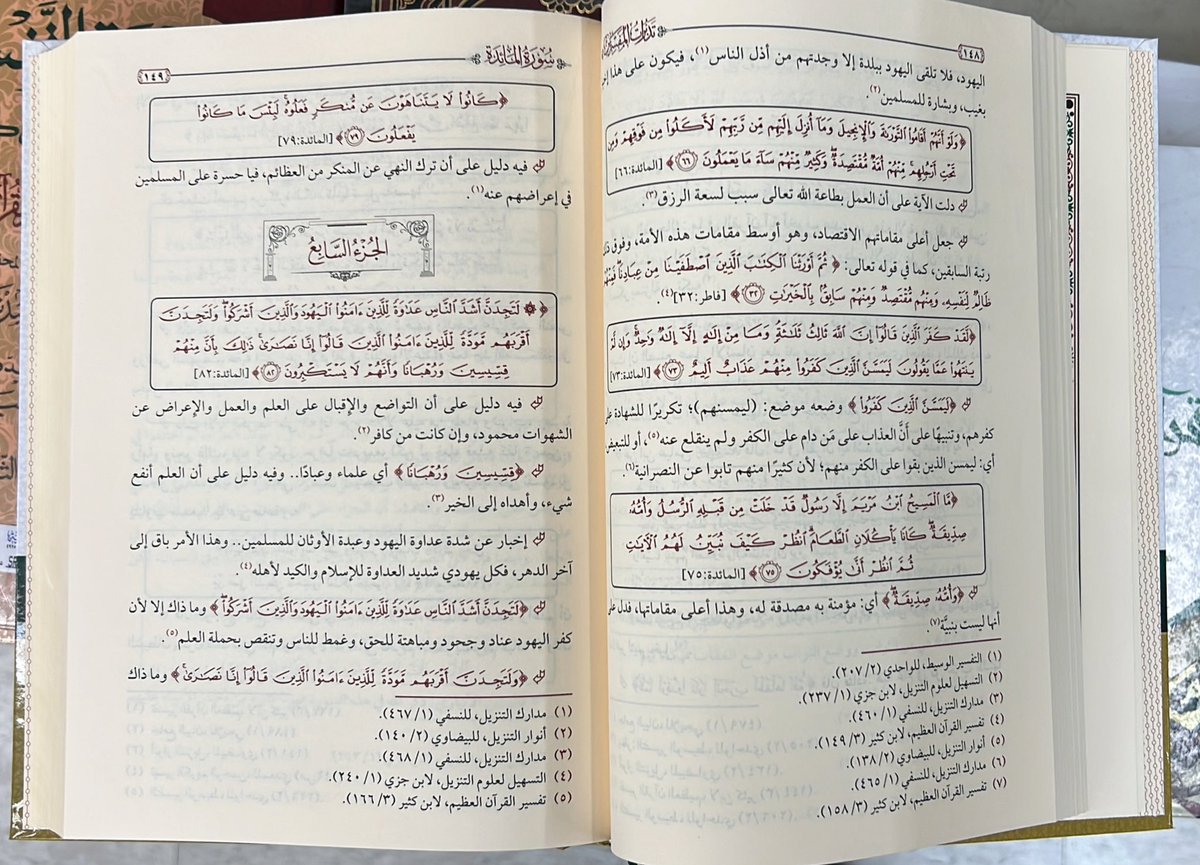 ١٤٨
تدبرات المفسرين
اليهود، فلا تلقى اليهود ببلدة إلا وجدتهم من أذل الناس(١)، فيكون على هذا
بغيب، وبشارة للمسلمين(٢).
﴿وَلَوْ أَنَّهُمْ أَقَامُوا۟ ٱلتَّوْرَىٰةَ وَٱلْإِنجِيلَ وَمَآ أُنزِلَ إِلَيْهِم مِّن رَّبِّهِمْ لَأَكَلُوا۟ مِن فَوْقِهِمْ وَمِن
تَحْتِ أَرْجُلِهِم ۚ مِّنْهُمْ أُمَّةٌ مُّقْتَصِدَةٌ ۖ وَكَثِيرٌ مِّنْهُمْ سَآءَ مَا يَعْمَلُونَ ٦٦﴾ [المائدة:٦٦]
دلت الآية على أن العمل بطاعة الله تعالى سبب لسعة الرزق(٣).
جعل أعلى مقاماتهم الاقتصاد، وهو أوسط مقامات هذه الأمة، وفوق
رتبة السابقين، كما في قوله تعالى: ﴿ثُمَّ أَوْرَثْنَا ٱلْكِتَـٰبَ ٱلَّذِينَ ٱصْطَفَيْنَا مِنْ عِبَادِنَا ۖ فَمِنْهُمْ
ظَالِمٌ لِّنَفْسِهِۦ وَمِنْهُم مُّقْتَصِدٌ وَمِنْهُمْ سَابِقٌۢ بِٱلْخَيْرَٰتِ ٣٢﴾ [فاطر:٣٢](٤).
﴿لَّقَدْ كَفَرَ ٱلَّذِينَ قَالُوٓا۟ إِنَّ ٱللَّهَ ثَالِثُ ثَلَـٰثَةٍ ۘ وَمَا مِنْ إِلَـٰهٍ إِلَّآ إِلَـٰهٌ وَٰحِدٌ ۚ وَإِن لَّمْ
يَنتَهُوا۟ عَمَّا يَقُولُونَ لَيَمَسَّنَّ ٱلَّذِينَ كَفَرُوا۟ مِنْهُمْ عَذَابٌ أَلِيمٌ ٧٣﴾ [المائدة:٧٣]
﴿لَيَمَسَّنَّ ٱلَّذِينَ كَفَرُوا۟﴾ وضعه موضع: (ليمسنهم)؛ تكريرًا للشهادة على
كفرهم، وتنبيهًا على أَنَّ العذاب على مَن دام على الكفر ولم ينقلع عنه(٥)، أو للتبعيض
أي: ليمسن الذين بقوا على الكفر منهم؛ لأن كثيرًا منهم تابوا عن النصرانية(٦).
﴿مَّا ٱلْمَسِيحُ ٱبْنُ مَرْيَمَ إِلَّا رَسُولٌ قَدْ خَلَتْ مِن قَبْلِهِ ٱلرُّسُلُ وَأُمُّهُۥ
صِدِّيقَةٌ ۖ كَانَا يَأْكُلَانِ ٱلطَّعَامَ ۗ ٱنظُرْ كَيْفَ نُبَيِّنُ لَهُمُ ٱلْـَٔايَـٰتِ
ثُمَّ ٱنظُرْ أَنَّىٰ يُؤْفَكُونَ ٧٥﴾ [المائدة:٧٥]
﴿وَأُمُّهُۥ صِدِّيقَةٌ ۖ﴾ أي: مؤمنة به مصدقة له، وهذا أعلى مقاماتها، فدل على
أنها ليست بنبيَّة(٧).
(١) التفسير الوسيط، للواحدي (٢/ ٢٠٧).
(٢) التسهيل لعلوم التنزيل، لابن جزي (١/ ٢٣٧).
(٣) مدارك التنزيل، للنسفي (١/ ٤٦٠).
(٤) تفسير القرآن العظيم، لابن كثير (٣/ ١٤٩).
(٥) أنوار التنزيل، للبيضاوي (٢/ ١٣٨).
(٦) مدارك التنزيل، للنسفي (١/ ٤٦٥).
(٧) تفسير القرآن العظيم، لابن كثير (٣/ ١٥٨).
سُورَةُ المَائِدَةِ
١٤٩
﴿كَانُوا۟ لَا يَتَنَاهَوْنَ عَن مُّنكَرٍ فَعَلُوهُ ۚ لَبِئْسَ مَا كَانُوا۟
يَفْعَلُونَ ٧٩﴾ [المائدة:٧٩]
فيه دليل على أن ترك النهي عن المنكر من العظائم، فيا حسرة على المسلمين
في إعراضهم عنه(١).
الجُزْءُ السَّابِعُ
﴿۞ لَتَجِدَنَّ أَشَدَّ ٱلنَّاسِ عَدَٰوَةً لِّلَّذِينَ ءَامَنُوا۟ ٱلْيَهُودَ وَٱلَّذِينَ أَشْرَكُوا۟ ۖ وَلَتَجِدَنَّ
أَقْرَبَهُم مَّوَدَّةً لِّلَّذِينَ ءَامَنُوا۟ ٱلَّذِينَ قَالُوٓا۟ إِنَّا نَصَـٰرَىٰ ۚ ذَٰلِكَ بِأَنَّ مِنْهُمْ
قِسِّيسِينَ وَرُهْبَانًا وَأَنَّهُمْ لَا يَسْتَكْبِرُونَ ٨٢﴾ [المائدة:٨٢]
فيه دليل على أن التواضع والإقبال على العلم والعمل والإعراض عن
الشهوات محمود، وإن كانت من كافر(٢).
﴿قِسِّيسِينَ وَرُهْبَانًا﴾ أي علماء وعبادًا.. وفيه دليل على أن العلم أنفع
شيء، وأهداه إلى الخير(٣).
إخبار عن شدة عداوة اليهود وعبدة الأوثان للمسلمين.. وهذا الأمر باق إلى
آخر الدهر، فكل يهودي شديد العداوة للإسلام والكيد لأهله(٤).
﴿لَتَجِدَنَّ أَشَدَّ ٱلنَّاسِ عَدَٰوَةً لِّلَّذِينَ ءَامَنُوا۟ ٱلْيَهُودَ وَٱلَّذِينَ أَشْرَكُوا۟ ۖ﴾ وما ذاك إلا لأن
كفر اليهود عناد وجحود ومباهتة للحق، وغمط للناس وتنقص بحملة العلم(٥).
﴿وَلَتَجِدَنَّ أَقْرَبَهُم مَّوَدَّةً لِّلَّذِينَ ءَامَنُوا۟ ٱلَّذِينَ قَالُوٓا۟ إِنَّا نَصَـٰرَىٰ ۚ﴾ وما ذاك
(١) مدارك التنزيل، للنسفي (١/ ٤٦٧).
(٢) أنوار التنزيل، للبيضاوي (٢/ ١٤٠).
(٣) مدارك التنزيل، للنسفي (١/ ٤٦٨).
(٤) التسهيل لعلوم التنزيل، لابن جزي (١/ ٢٤٠).
(٥) تفسير القرآن العظيم، لابن كثير (٣/ ١٦٦).